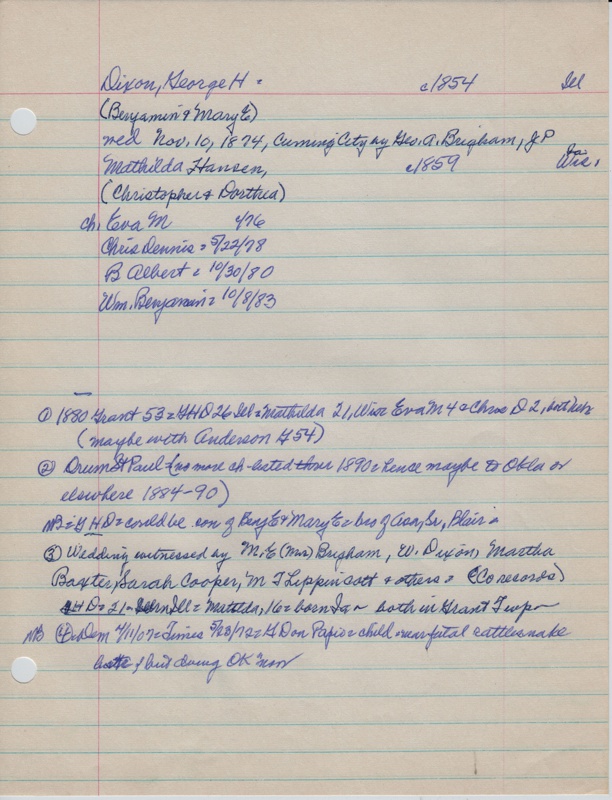 Dixon, George H = c1854 Ill
(Benjamin & Mary E)
wed Nov. 10, 1874, Cuming City by Geo. A. Brigham, J P
Mathilda Hansen, c1859 Ia Wis.
(Christopher & Dorthea)
ch. Eva M 4/76
Chris Dennis = 5/22/78
B Albert = 10/30/80
Wm. Benjamin = 10/8/83
① 1880 Grant 53 = GHD 26 Ill = Mathilda 21, Wis = Eva M 4 & Chris D 2, both Neb
(maybe with Anderson G54)
② Drum St Paul = no more ch listed thru 1890 = hence maybe to Okla or
elsewhere 1884-90)
NB = G H D = could be son of Benj E & Mary E = bro of Asa, Sr., Blair =
③ Wedding witnessed by M. E (Mrs) Brigham, W. Dixon, Martha
Baxter, Sarah Cooper, M T Lippincott & others = (Co records)
GHD = 21 = born Ill = Matilda, 16 = born Ia = both in Grant Twp
NB ④ Dem 4/11/07 = Times 5/28/72 = G D on Papio = child near fatal rattlesnake
bite, but doing OK now